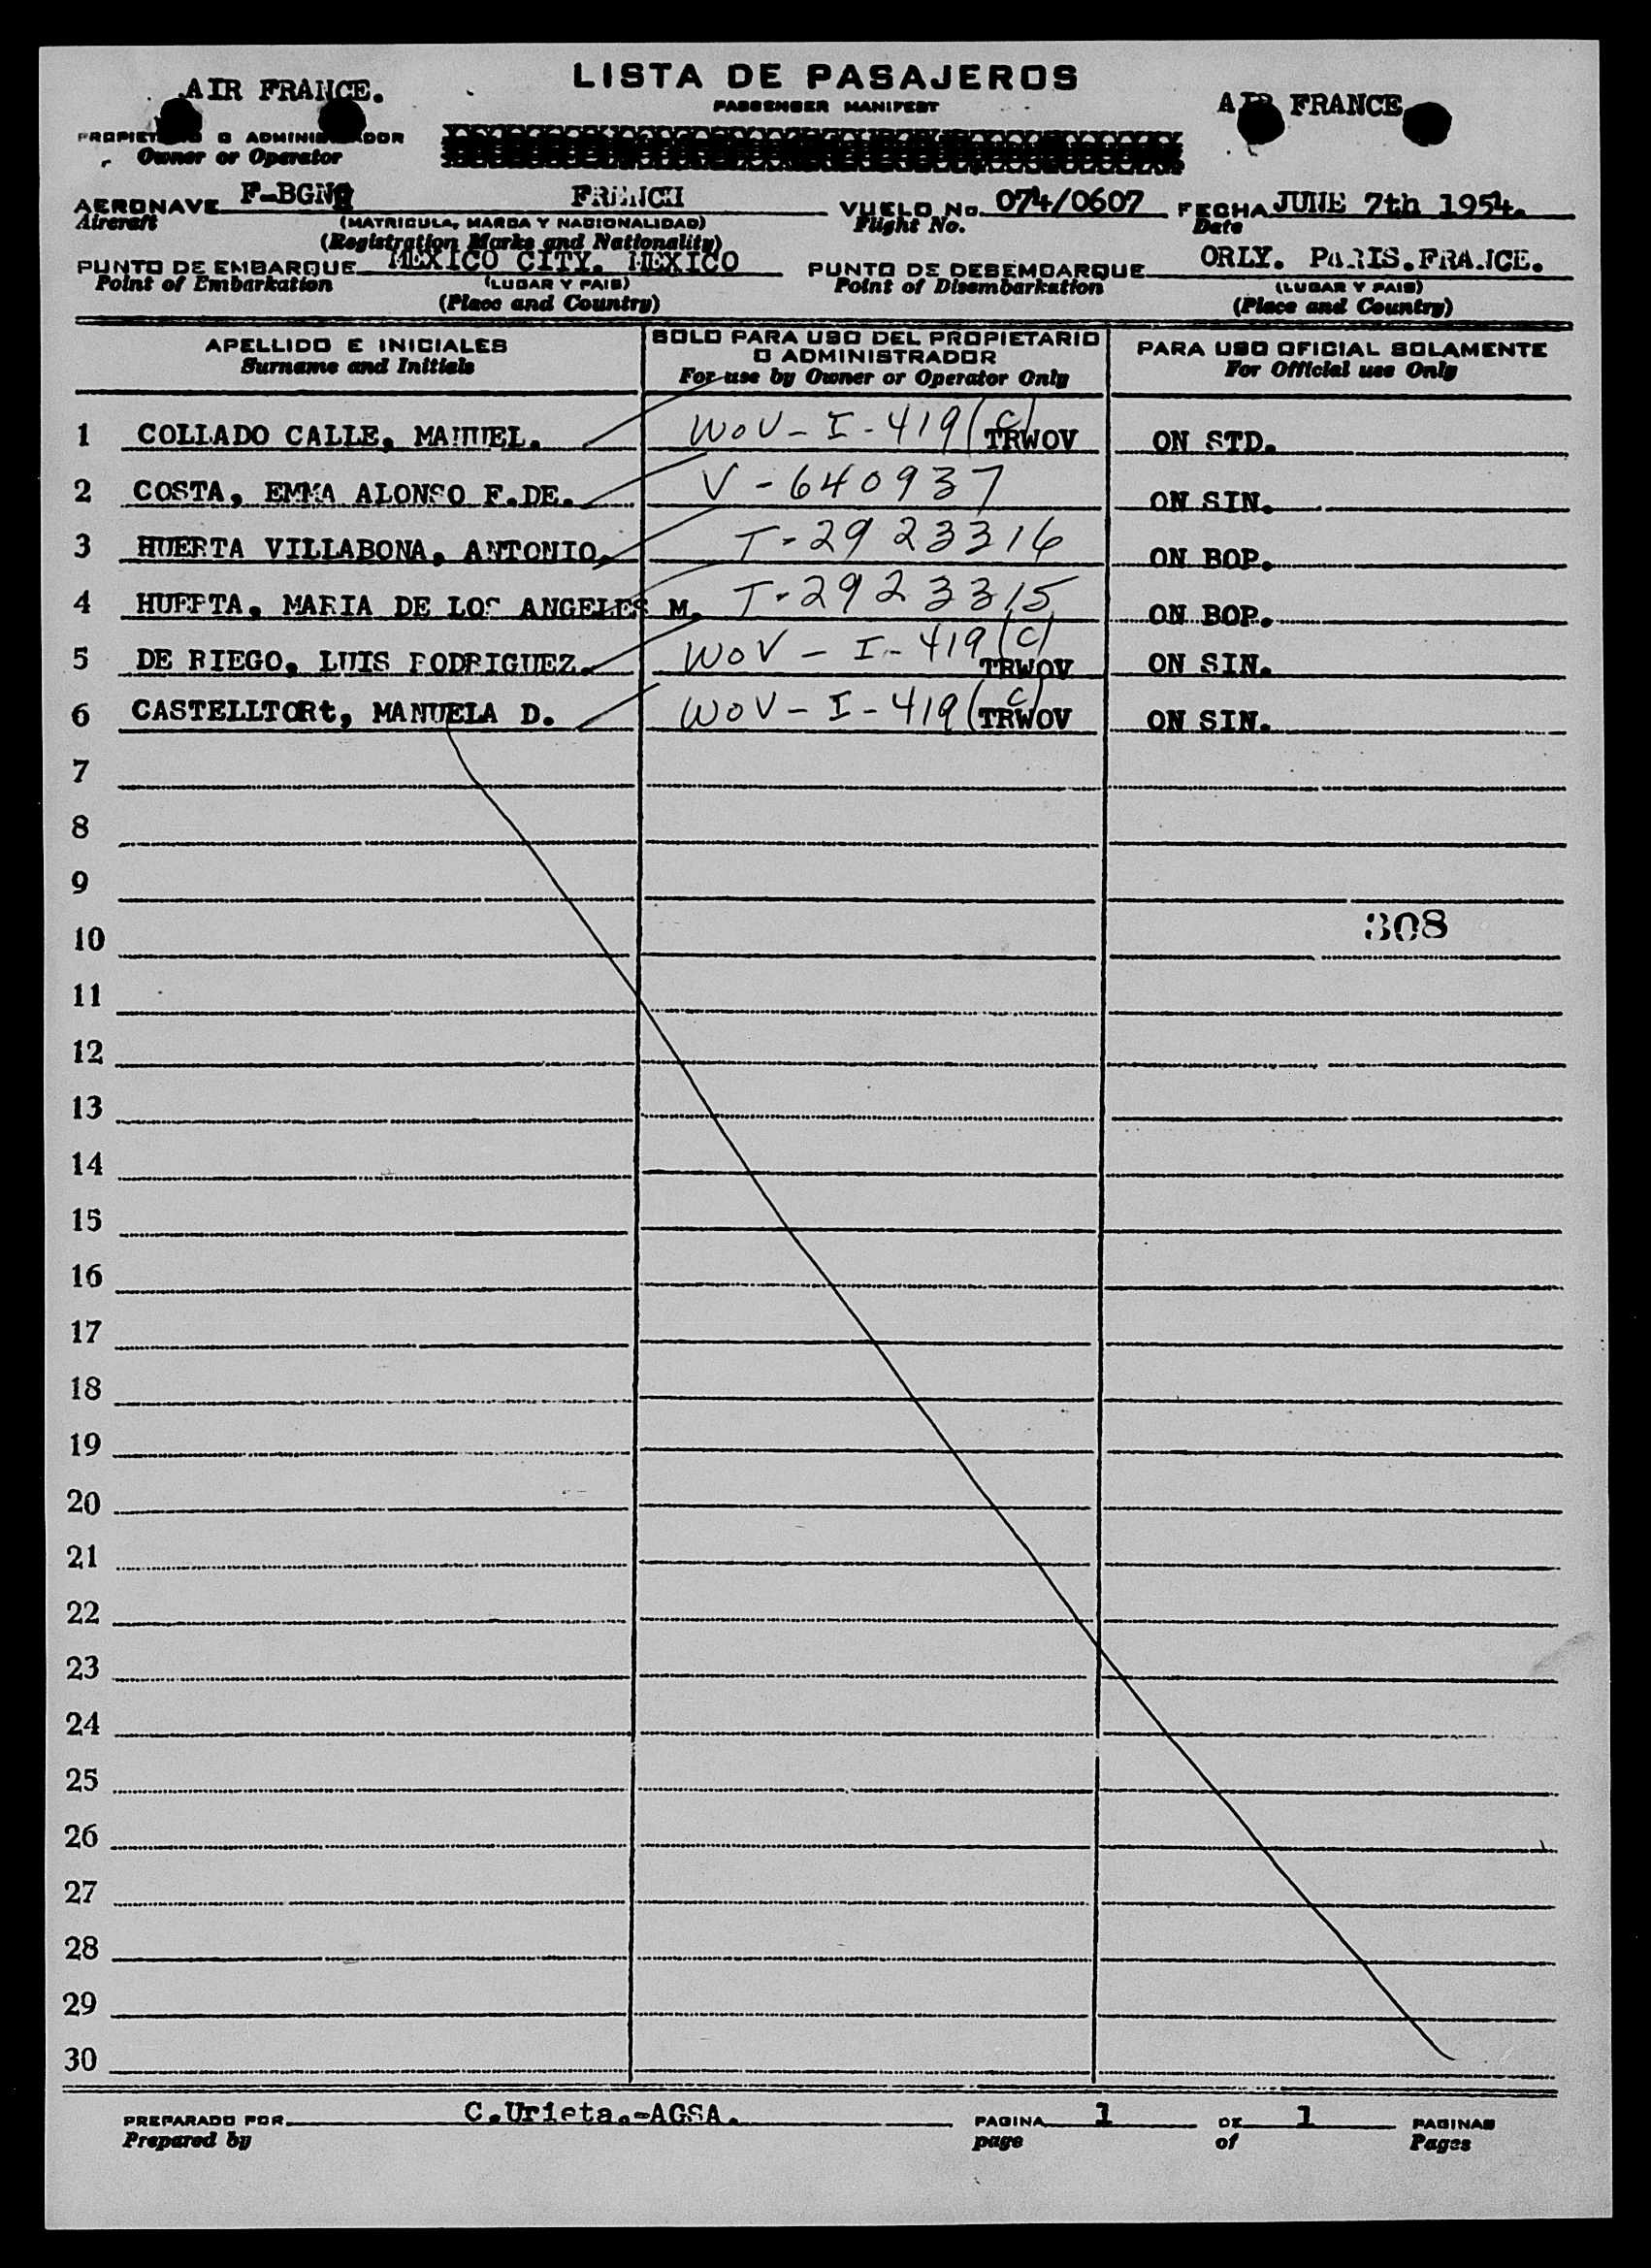 LISTA DE PASAJEROS
PASSENGER MANIFEST
AIR FRANCE.
AIR FRANCE
PROPIETARIO O ADMINISTRADOR
Owner or Operator
AERONAVE F-BGN FRENCH VUELO No. 074/0607 FECHA JUNE 7th 1954.
Aircraft (MATRICULA, MARCA Y NACIONALIDAD) Flight No. Date
(Registration Marks and Nationality)
PUNTO DE EMBARQUE MEXICO CITY. MEXICO PUNTO DE DESEMBARQUE ORLY. PARIS.FRANCE.
Point of Embarkation (LUGAR Y PAIS) Point of Disembarkation (LUGAR Y PAIS)
(Place and Country) (Place and Country)
APELLIDO E INICIALES
Surname and Initials
SOLO PARA USO DEL PROPIETARIO
O ADMINISTRADOR
For use by Owner or Operator Only
PARA USO OFICIAL SOLAMENTE
For Official use Only
1 COLLADO CALLE, MANUEL. WOV-I-419(C) TRWOV ON STD.
2 COSTA, EMMA ALONSO F.DE. V-640937 ON SIN.
3 HUERTA VILLABONA, ANTONIO. T-2923316 ON BOP.
4 HUERTA, MARIA DE LOS ANGELES M. T-2923315 ON BOP.
5 DE RIEGO, LUIS RODRIGUEZ. WOV-I-419(C) TRWOV ON SIN.
6 CASTELLTORt, MANUELA D. WOV-I-419(C) TRWOV ON SIN.
7
8
9
10 308
11
12
13
14
15
16
17
18
19
20
21
22
23
24
25
26
27
28
29
30
PREPARADO POR C.Urieta.-AGSA. PAGINA 1 DE 1 PAGINAS
Prepared by page of Pages